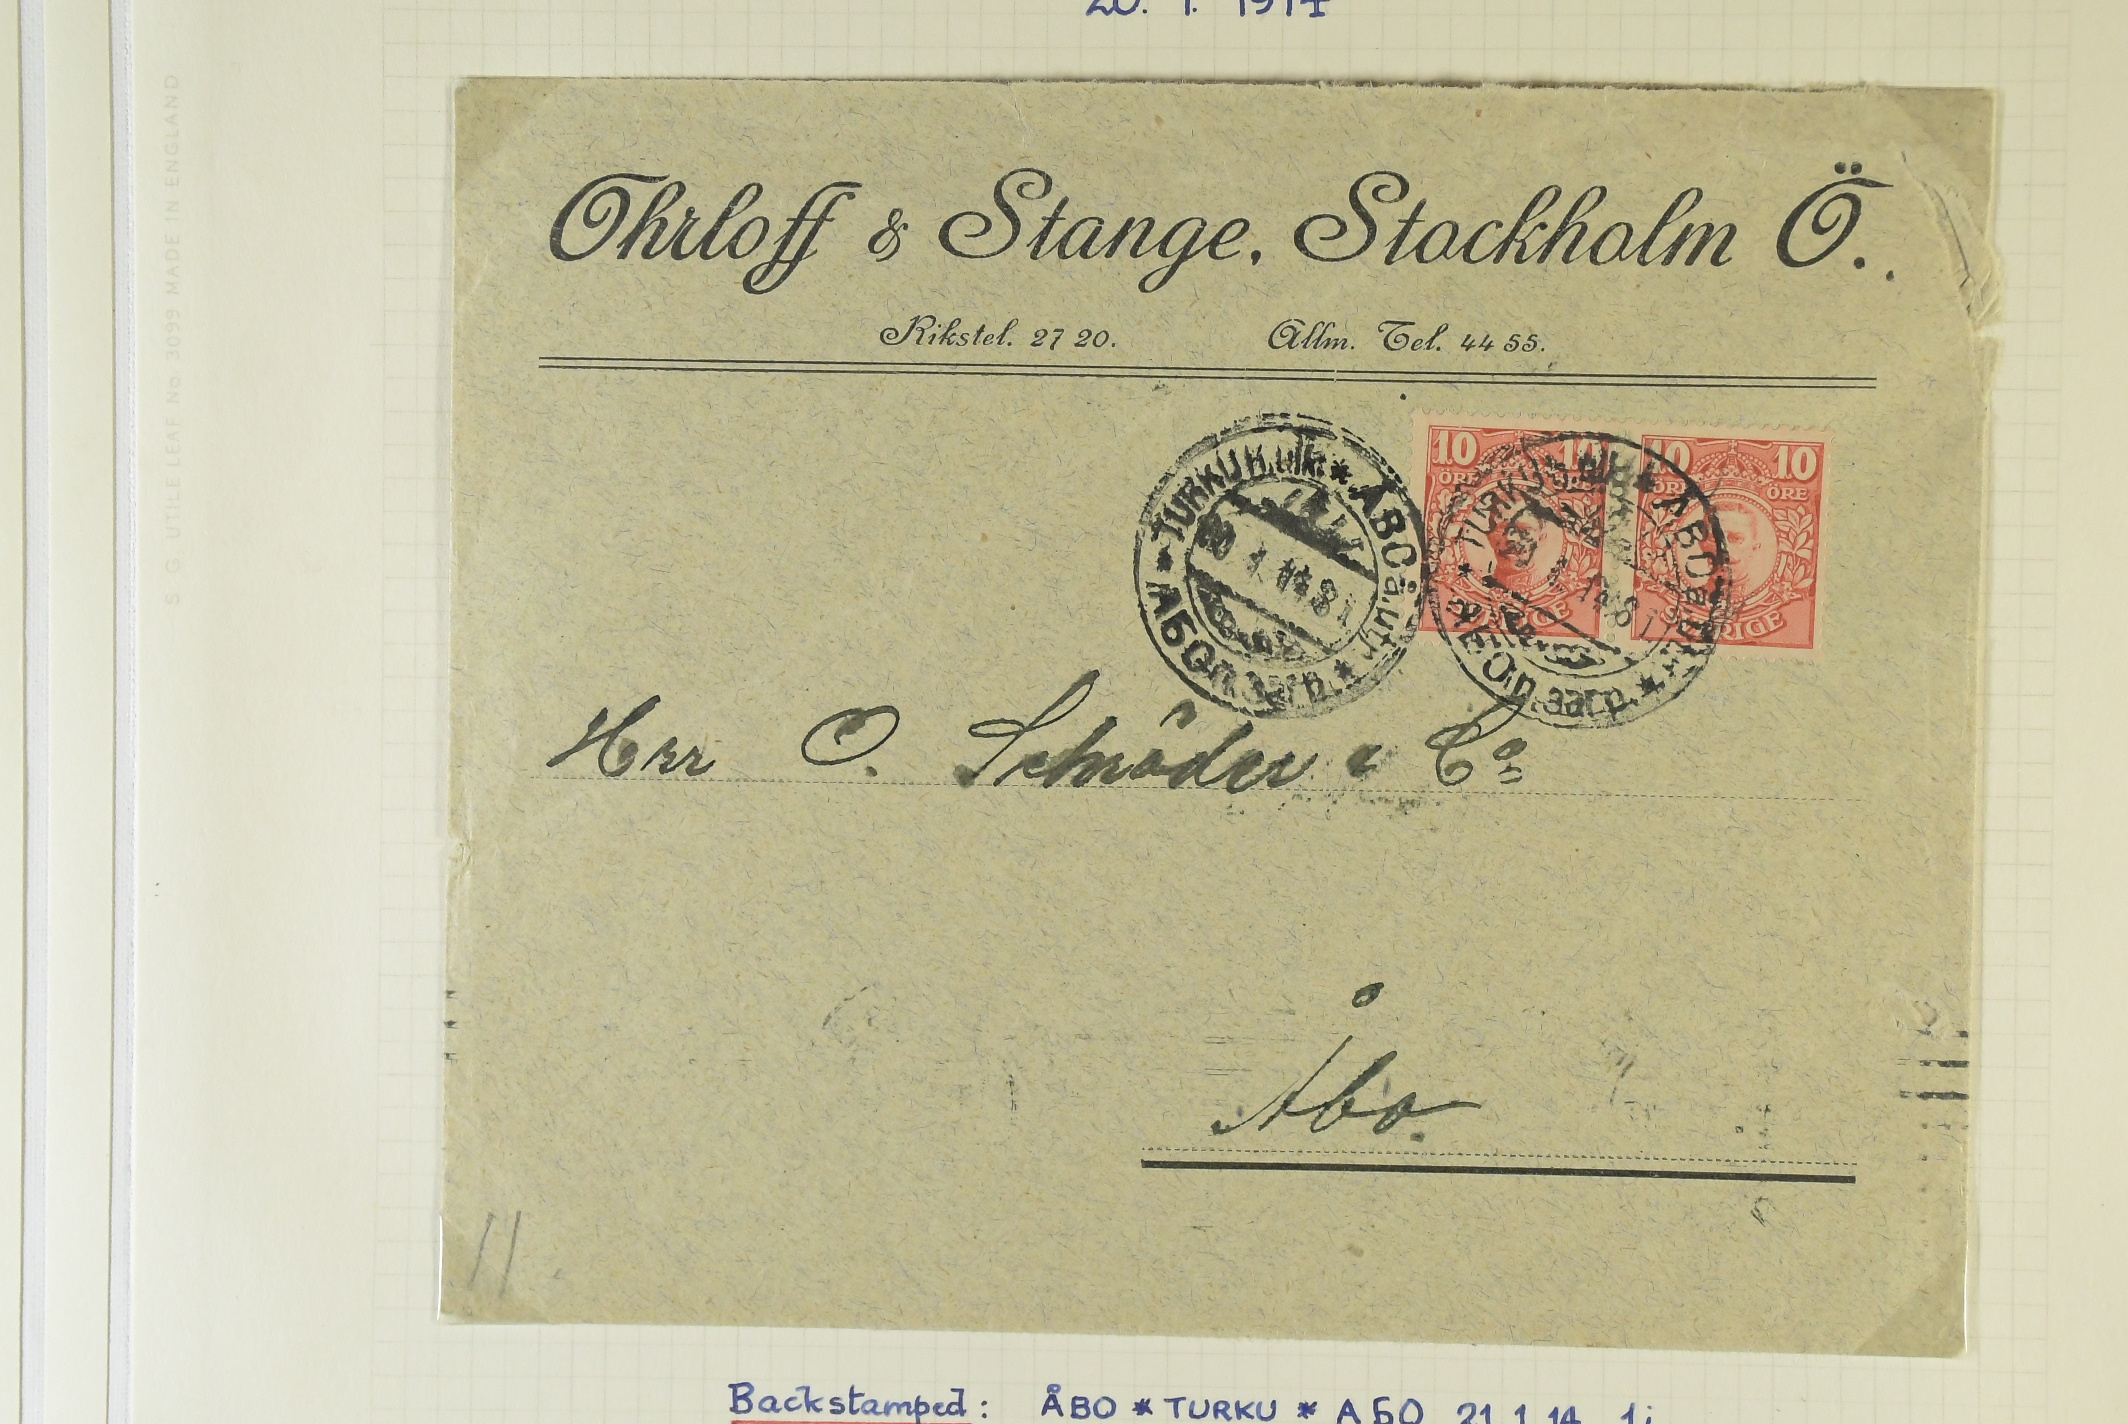 20. 1. 1914
S G UTILE LEAF No 3099 MADE IN ENGLAND
Ohrloff & Stange, Stockholm Ö.
Rikstel. 27 20. Allm. Tel. 44 55.
TURKU K.ulk * ÅBO a.utr * АБО п.загр. *
20 1 14 8 i
10 10
ÖRE ÖRE
SVERIGE
10 10
ÖRE ÖRE
SVERIGE
TURKU * ÅBO a.utr * АБО п.загр. *
1 14 8 i
Herr O. Schröder & Co
Åbo.
11
Backstamped: ÅBO * TURKU * АБО 21 1 14 1 i